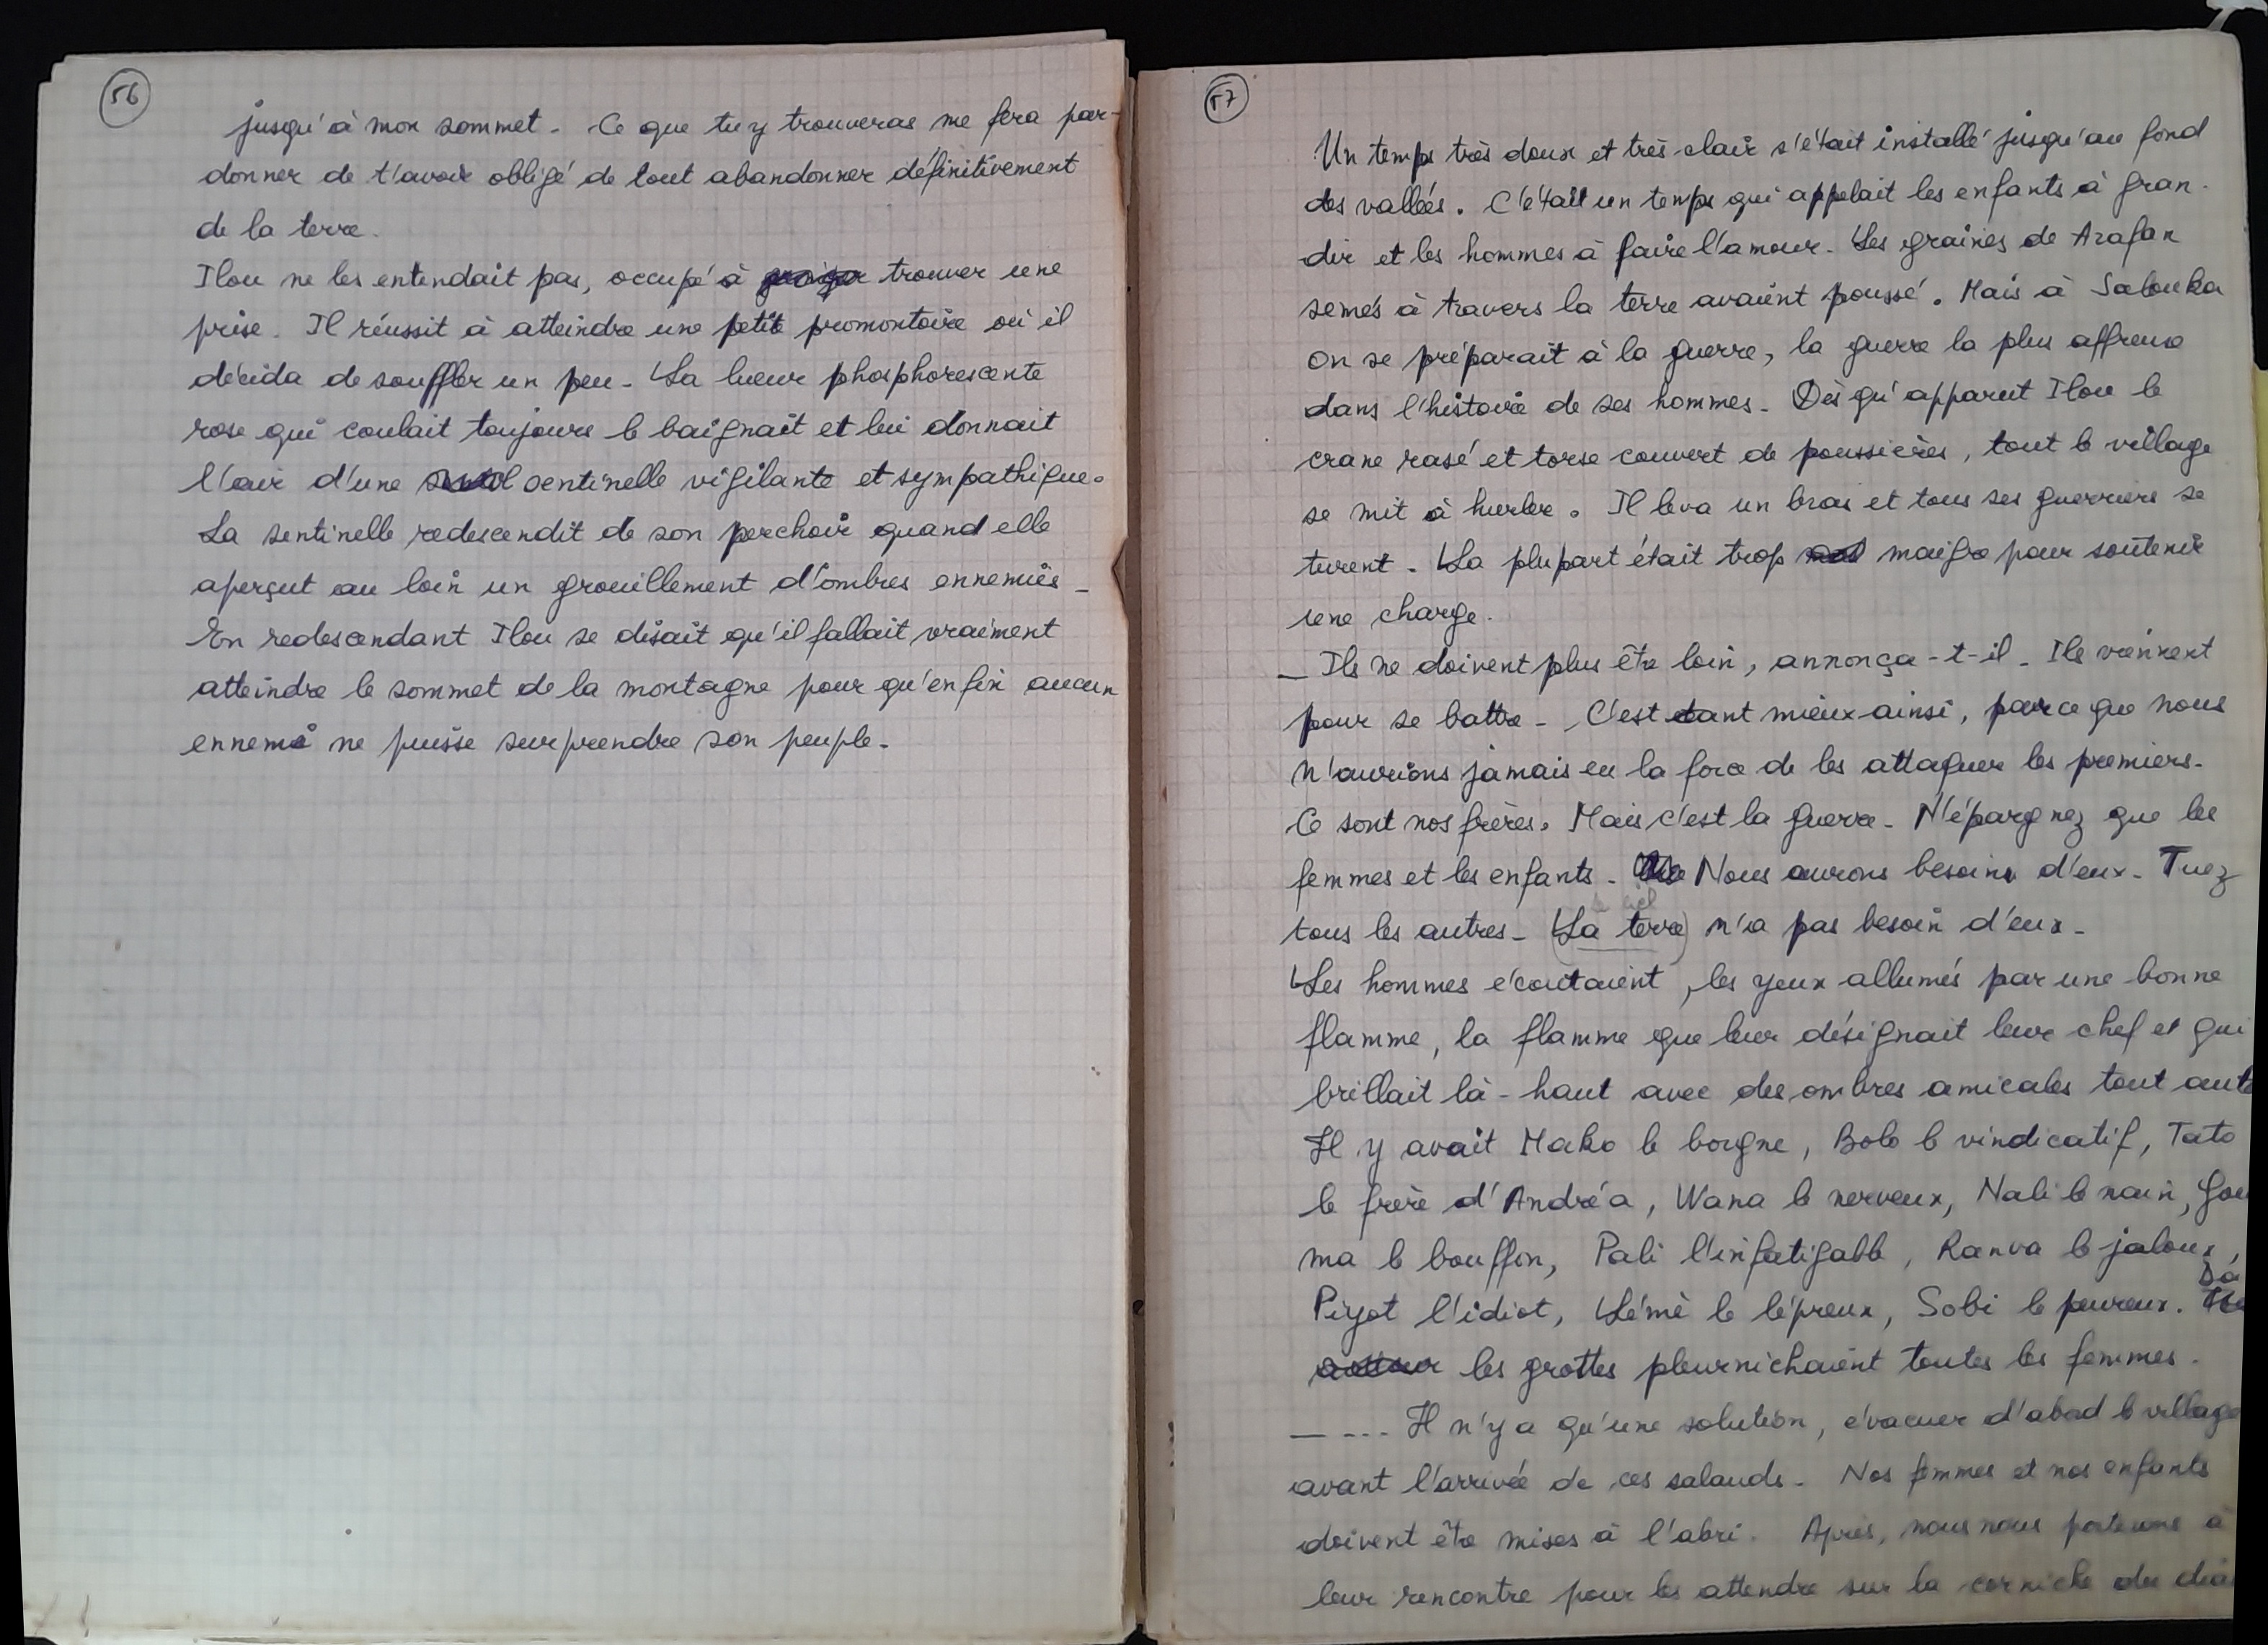 56
jusqu'à mon sommet. Ce que tu y trouveras me fera par-
donner de t'avoir obligé de tout abandonner définitivement
de la terre.
Ilou ne les entendait pas, occupé à trouver une
prise. Il réussit à atteindre une petit promontoire où il
décida de souffler un peu. La lueur phosphorescente
rose qui coulait toujours le baignait et lui donnait
l'air d'une sentinelle vigilante et sympathique.
La sentinelle redescendit de son perchoir quand elle
aperçut au loin un grouillement d'ombres ennemies.
En redescendant Ilou se disait qu'il fallait vraiment
atteindre le sommet de la montagne pour qu'enfin aucun
ennemi ne puisse surprendre son peuple.
57
Un temps très doux et très clair s'était installé jusqu'au fond
des vallées. C'était un temps qui appelait les enfants à gran-
dir et les hommes à faire l'amour. Les graines de Arafan
semés à travers la terre avaient poussé. Mais à Salouka
on se préparait à la guerre, la guerre la plus affreuse
dans l'histoire de ses hommes. Dès qu'apparut Ilou le
crane rasé et torse couvert de poussières, tout le village
se mit à hurler. Il leva un bras et tous ses guerriers se
turent. La plupart était trop maigre pour soutenir
une charge.
_ Ils ne doivent plus être loin, annonça-t-il. Ils viennent
pour se battre. C'est tant mieux ainsi, parce que nous
n'aurions jamais eu la force de les attaquer les premiers.
Ce sont nos frères. Mais c'est la guerre. N'épargnez que les
femmes et les enfants. Nous aurons besoins d'eux. Tuez
tous les autres. (La terre) n'a pas besoin d'eux.
le ciel
Les hommes écoutaient, les yeux allumés par une bonne
flamme, la flamme que leur désignait leur chef et qui
brillait là-haut avec des ombres amicales tout auto
Il y avait Mako le borgne, Bolo le vindicatif, Tato
le frère d'Andréa, Wana le nerveux, Nali le nain, Gou
ma le bouffon, Pali l'infatigable, Ranva le jaloux,
Piyot l'idiot, Lémè le lépreux, Sobi le peureux. Da
les grottes pleurnichaient toutes les femmes.
_ ... Il n'y a qu'une solution, évacuer d'abord le village
avant l'arrivée de ces salauds. Nos femmes et nos enfants
doivent être mises à l'abri. Après, nous nous porterons à
leur rencontre pour les attendre sur la corniche du dia